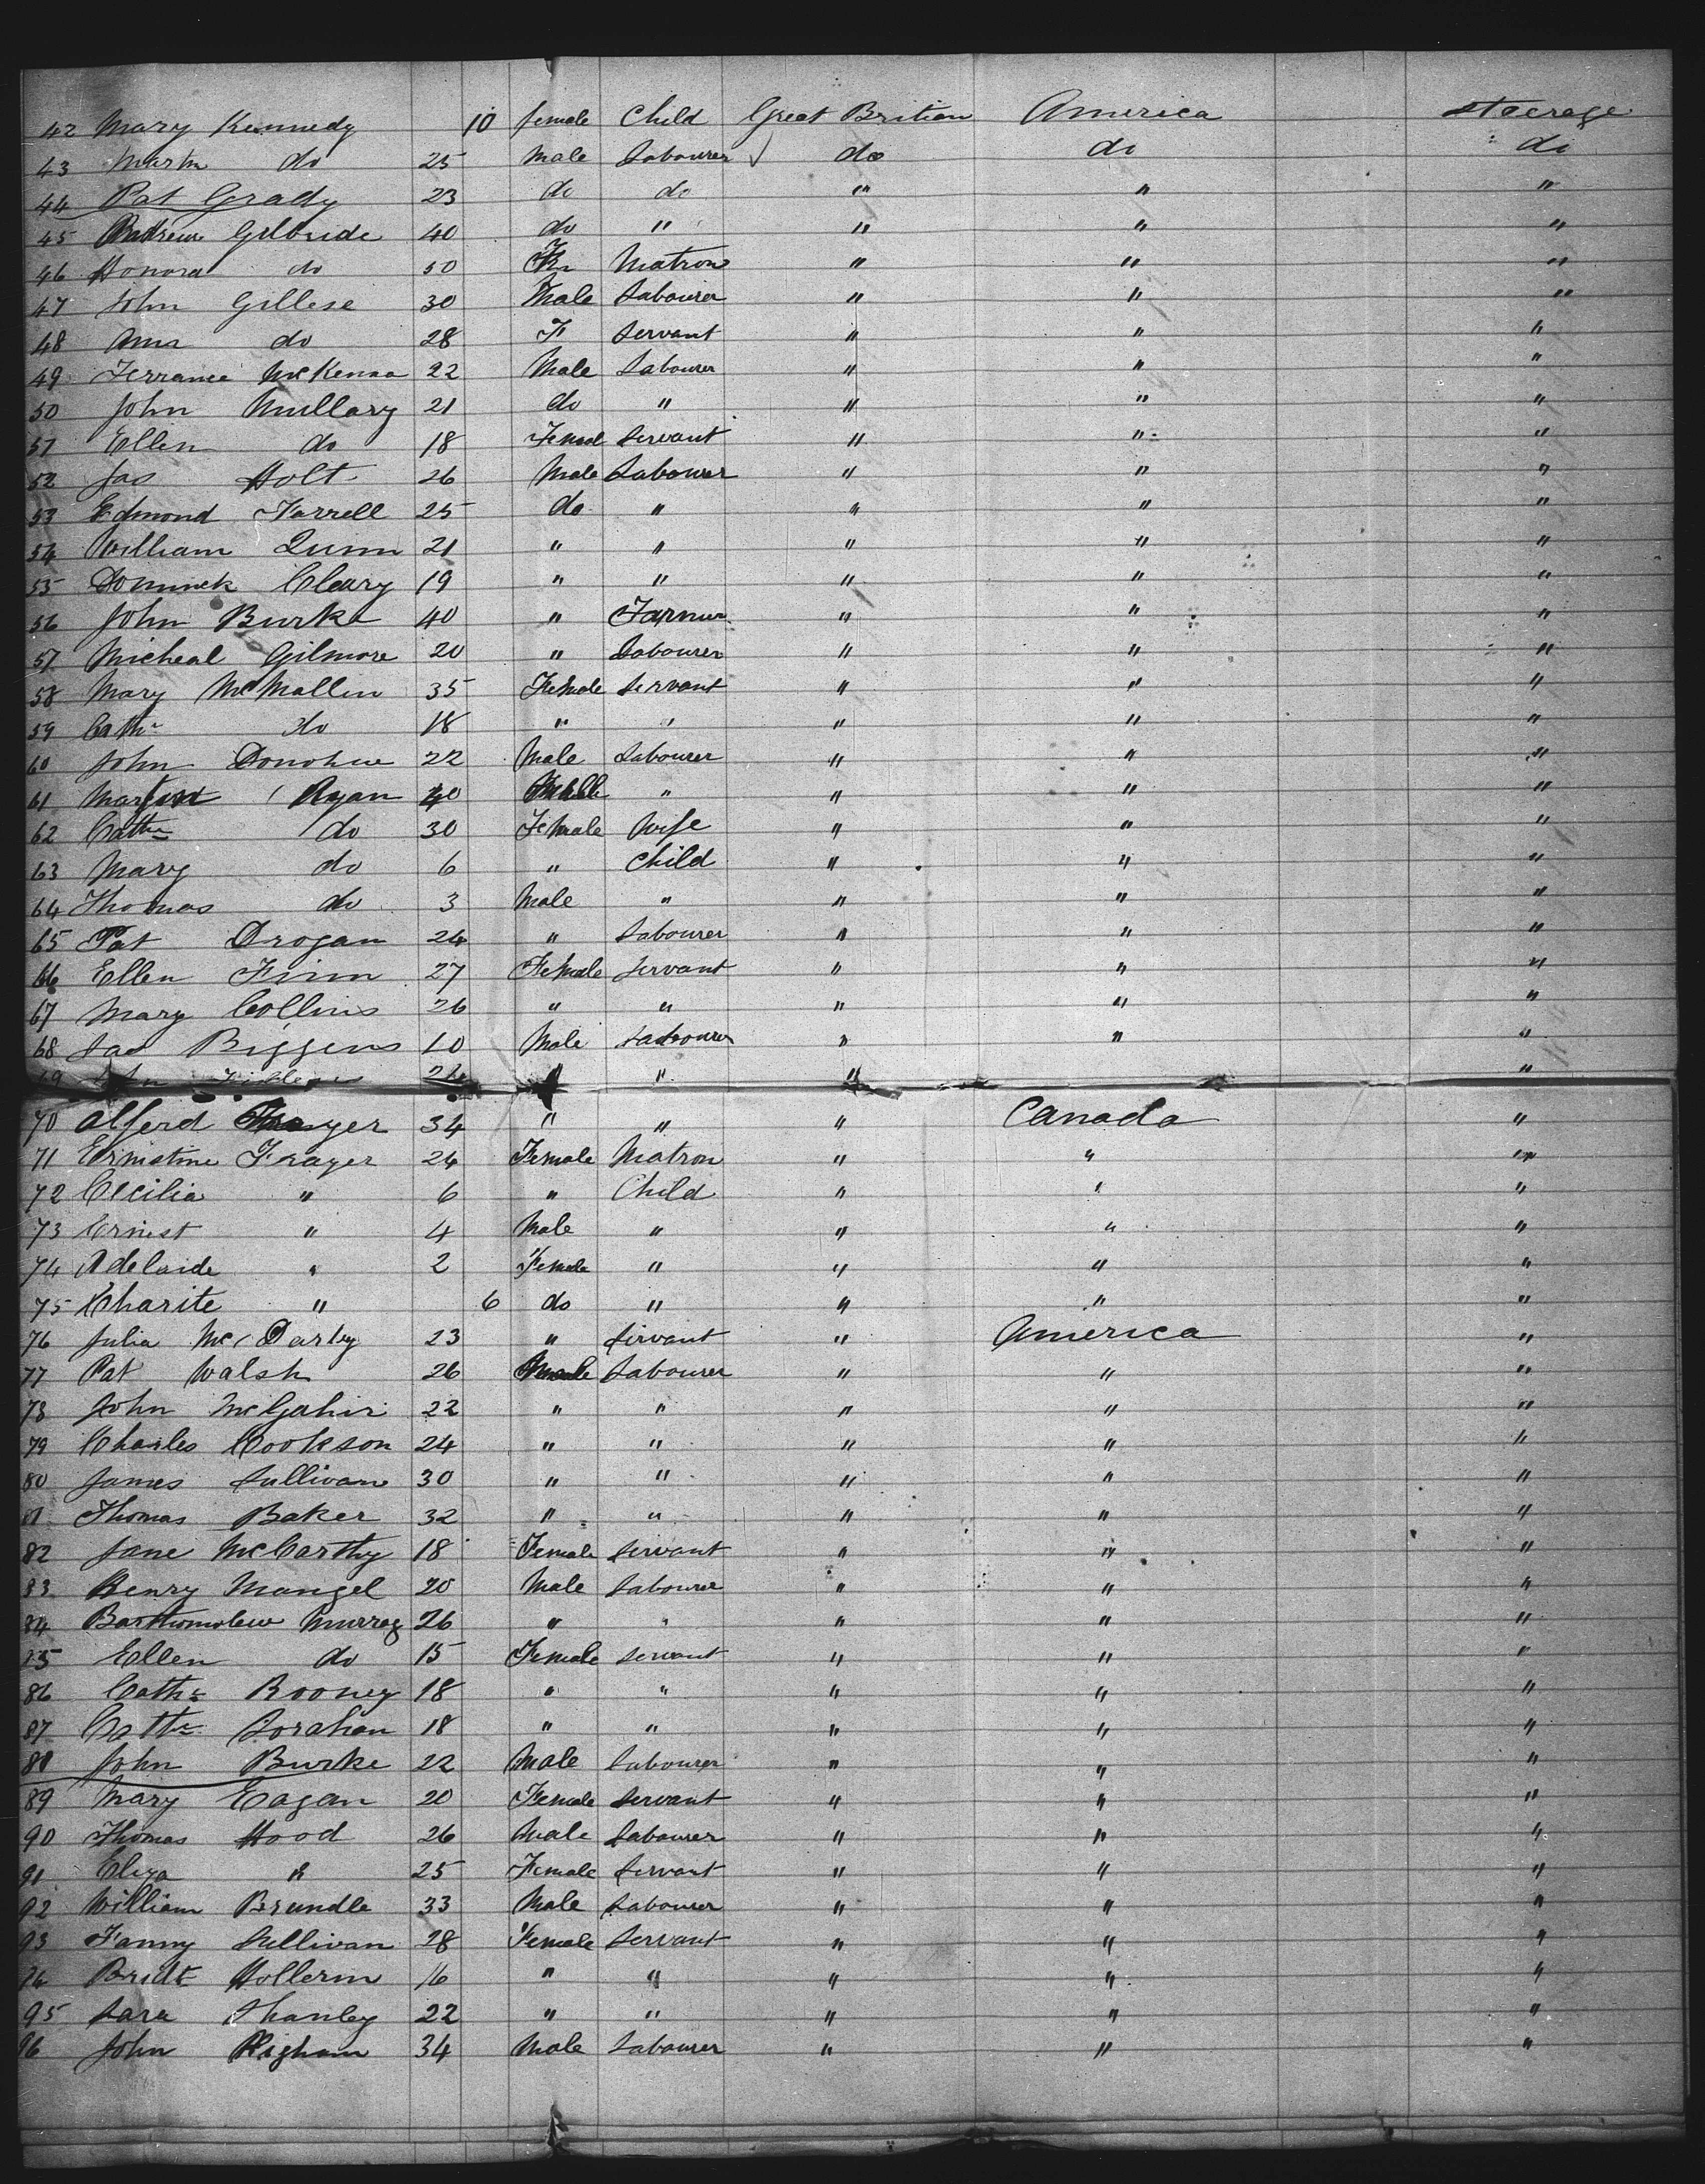 42 Mary Kennedy 10 female Child Great Britian America Steerage
43 Martn do 25 Male Labourer √ do do do
44 Pat Grady 23 do do " " "
45 Andrew Gilbride 40 do " " " "
46 Honora do 50 Fm Matron " " "
47 John Gillese 30 Male Labourer " " "
48 Ann do 28 F Servant " " "
49 Terrance McKenna 22 Male Labourer " " "
50 John Mullary 21 do " " " "
51 Ellen do 18 Femal Servant " " "
52 Jas Holt 26 Male Labourer " " "
53 Edmond Farrell 25 do " " " "
54 William Quinn 21 " " " " "
55 Dominek Cleary 19 " " " " "
56 John Burke 40 " Farmer " " "
57 Micheal Gilmore 20 " Labourer " " "
58 Mary McMallin 35 Female Servant " " "
59 Cathe do 18 " " " " "
60 John Donohue 22 Male Labourer " " "
61 Martin Ryan 40 Male " " " "
62 Cathe do 30 Female Wife " " "
63 Mary do 6 " Child " " "
64 Thomas do 3 Male " " " "
65 Pat Drogan 24 " Labourer " " "
66 Ellen Finn 27 Female Servant " " "
67 Mary Collins 26 " " " " "
68 Jas Biggens 10 Male Labourer " " "
69 24 " " " "
70 Alferd 34 " " " Canada "
71 Ernistine Frayer 24 Female Matron " " "
72 Cecilia " 6 " Child " " "
73 Ernist " 4 Male " " " "
74 Adelaide " 2 Female " " " "
75 Charite " 6 do " " " "
76 Julia Mc Darby 23 " Servant " America "
77 Pat Walsh 26 Male Labourer " " "
78 John McGahir 22 " " " " "
79 Charles Cookson 24 " " " " "
80 James Sullivan 30 " " " " "
81 Thomas Baker 32 " " " " "
82 Jane McCarthy 18 Female Servant " " "
83 Henry Mangel 20 Male Labourer " " "
84 Barthomolew Murray 26 " " " " "
85 Ellen do 15 Female Servant " " "
86 Cathe Rooney 18 " " " " "
87 Cathe Sorahan 18 " " " " "
88 John Burke 22 Male Labourer " " "
89 Mary Eagan 20 Female Servant " " "
90 Thomas Hood 26 Male Labourer " " "
91 Eliza " 25 Female Servant " " "
92 William Brundle 33 Male Labourer " " "
93 Fanny Sullivan 28 Female Servant " " "
94 Bridt Hollerin 16 " " " " "
95 Sara Shanley 22 " " " " "
96 John Higham 34 Male Labourer " " "